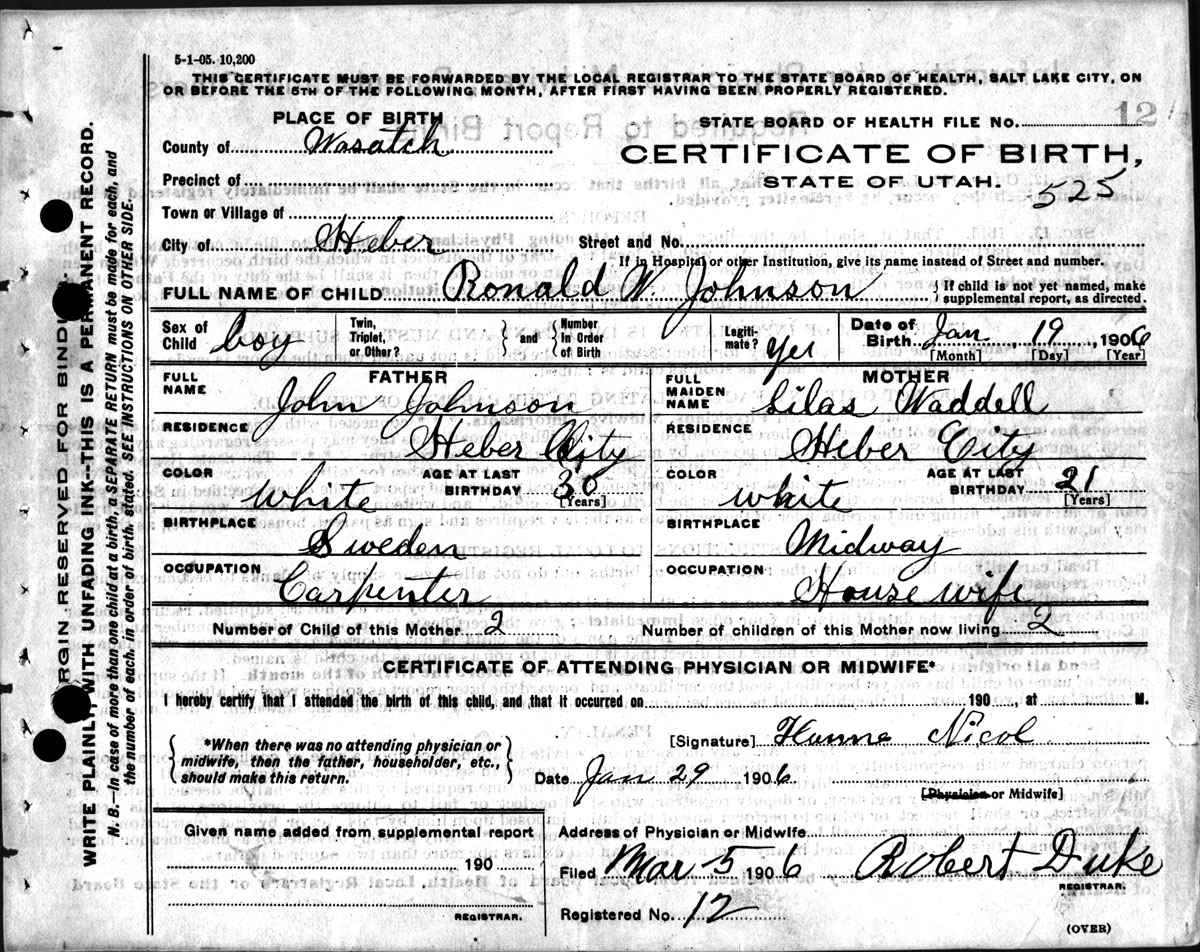 5-1-05. 10,200
THIS CERTIFICATE MUST BE FORWARDED BY THE LOCAL REGISTRAR TO THE STATE BOARD OF HEALTH, SALT LAKE CITY, ON
OR BEFORE THE 5TH OF THE FOLLOWING MONTH, AFTER FIRST HAVING BEEN PROPERLY REGISTERED.
12
PLACE OF BIRTH
STATE BOARD OF HEALTH FILE NO.
County of Wasatch
CERTIFICATE OF BIRTH,
Precinct of
STATE OF UTAH.
525
Town or Village of
City of Heber
Street and No.
If in Hospital or other Institution, give its name instead of Street and number.
FULL NAME OF CHILD Ronald W. Johnson
{ If child is not yet named, make
supplemental report, as directed.
Sex of Child boy
Twin, Triplet, or Other? } and { Number In Order of Birth
Legiti-mate? yes
Date of Birth Jan. 19, 1906
[Month] [Day] [Year]
FATHER
FULL NAME John Johnson
RESIDENCE Heber City
COLOR White
AGE AT LAST BIRTHDAY 30
[Years]
BIRTHPLACE Sweden
OCCUPATION Carpenter
MOTHER
FULL MAIDEN NAME Lilas Waddell
RESIDENCE Heber City
COLOR White
AGE AT LAST BIRTHDAY 21
[Years]
BIRTHPLACE Midway
OCCUPATION House wife
Number of Child of this Mother 2
Number of children of this Mother now living 2
CERTIFICATE OF ATTENDING PHYSICIAN OR MIDWIFE*
I hereby certify that I attended the birth of this child, and that it occurred on 190 , at M.
{ *When there was no attending physician or
midwife, then the father, householder, etc.,
should make this return. }
[Signature] Hanna Nicol
Date Jan 29 1906
[Physician or Midwife]
Given name added from supplemental report
190
REGISTRAR.
Address of Physician or Midwife
Filed Mar 5 1906 Robert Duke
REGISTRAR.
Registered No. 12
(OVER)
RGIN RESERVED FOR BINDI
WRITE PLAINLY, WITH UNFADING INK--THIS IS A PERMANENT RECORD.
N. B.—In case of more than one child at a birth, a SEPARATE RETURN must be made for each, and
the number of each, in order of birth, stated. SEE INSTRUCTIONS ON OTHER SIDE.